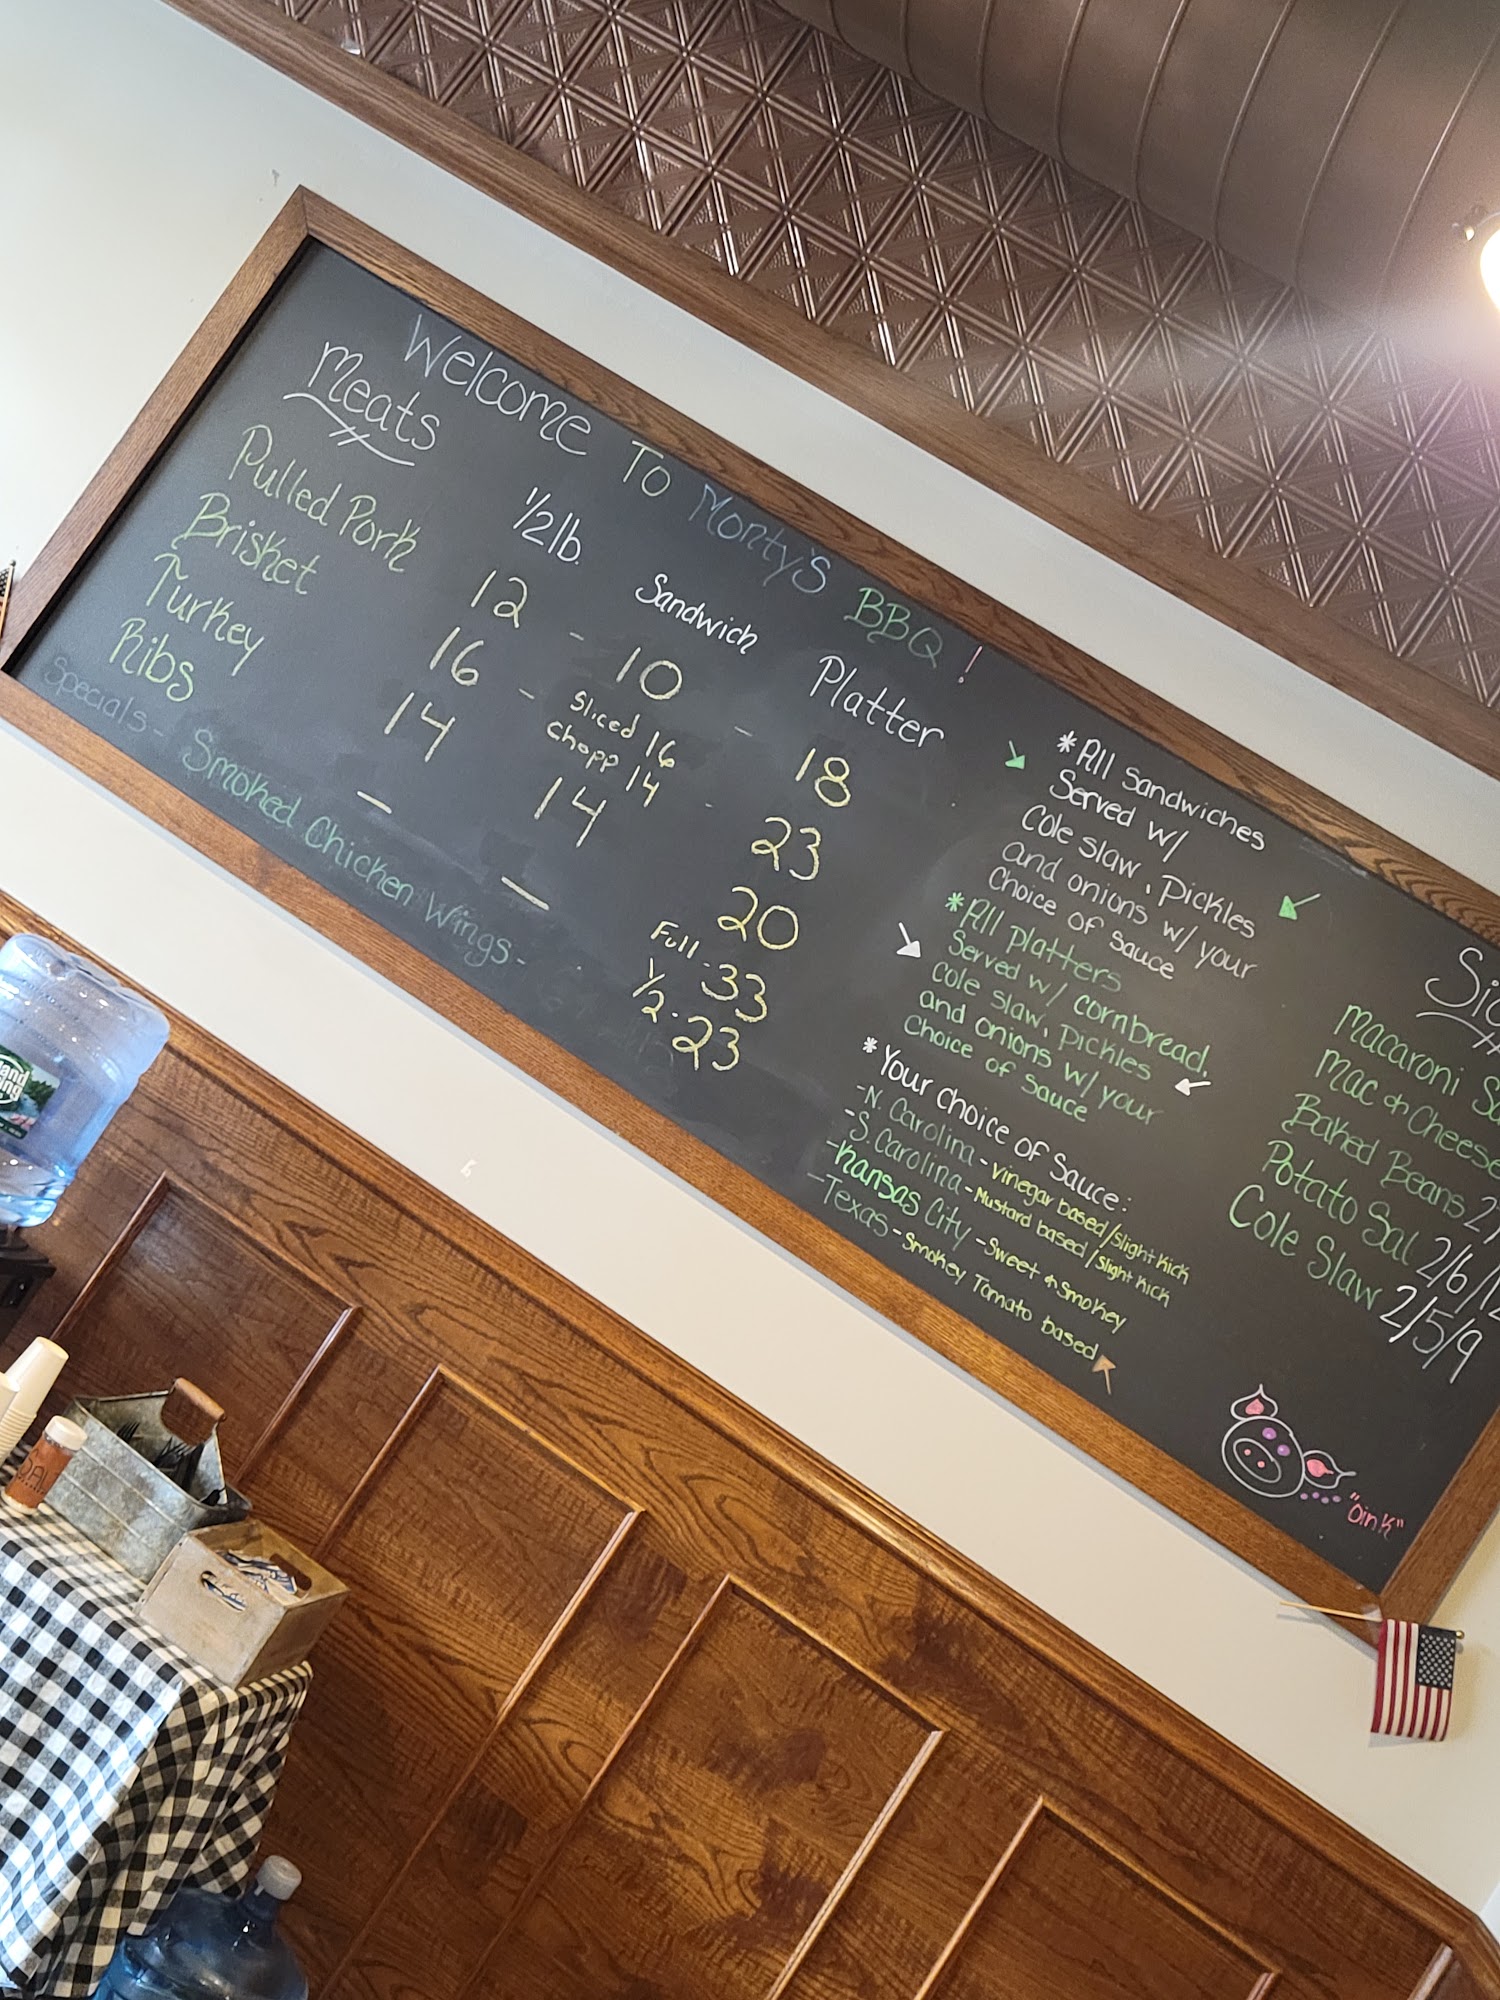 Welcome To Monty's BBQ!
Meats 1/2 lb. Sandwich Platter
Pulled Pork 12 - 10 - 18
Brisket 16 - Sliced 16 - 23
chopp 14
Turkey 14 14 20
Ribs — — Full - 33
1/2 - 23
Specials - Smoked Chicken Wings -
*All Sandwiches
Served w/
Cole slaw, Pickles
and onions w/ your
Choice of sauce
*All Platters
Served w/ cornbread,
Cole slaw, Pickles
and onions w/ your
Choice of Sauce
*Your choice of Sauce:
-N. Carolina - Vinegar based/slight kick
-S. Carolina - Mustard based/slight kick
-Kansas City - Sweet & Smokey
-Texas - Smokey Tomato based
Macaroni
Mac & Cheese
Baked Beans
Potato Sal 2/6/
Cole Slaw 2/5/9
"Oink"